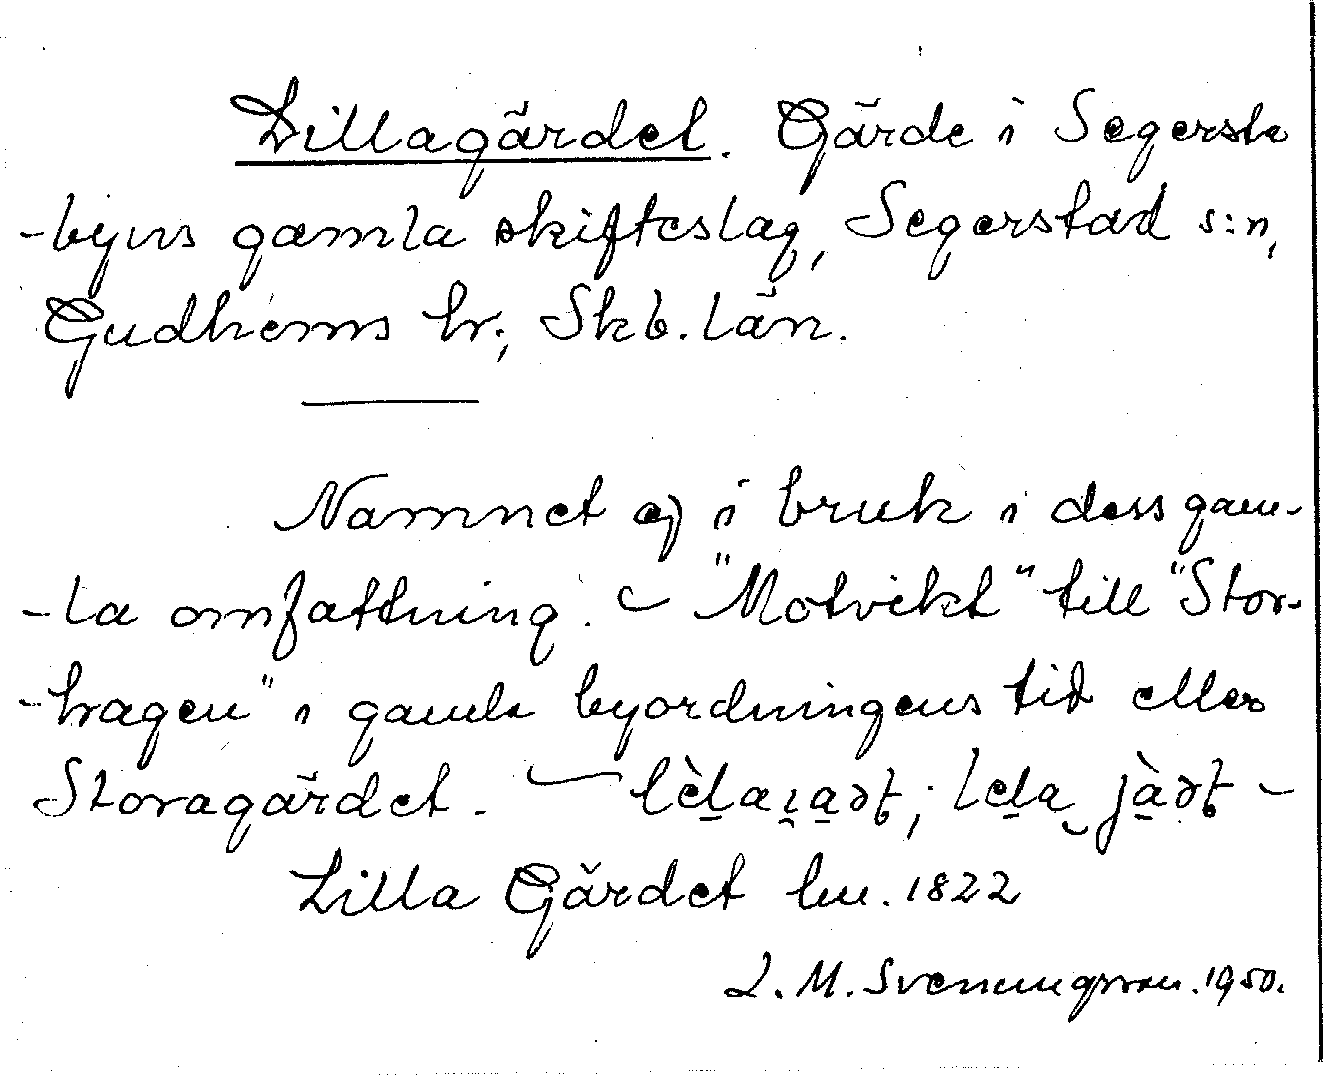 Lillagärdet. Gärde i Segersta
-byns gamla skifteslag, Segerstad s:n,
Gudhems hr., Skb. län.
Namnet ej i bruk i dess gam-
-la omfattning. – "Motvikt" till "Stor-
-hagen" i gamla byordningens tid eller
Storagärdet. –
Lilla Gärdet lm. 1822
L. M. Svenungsson. 1950.